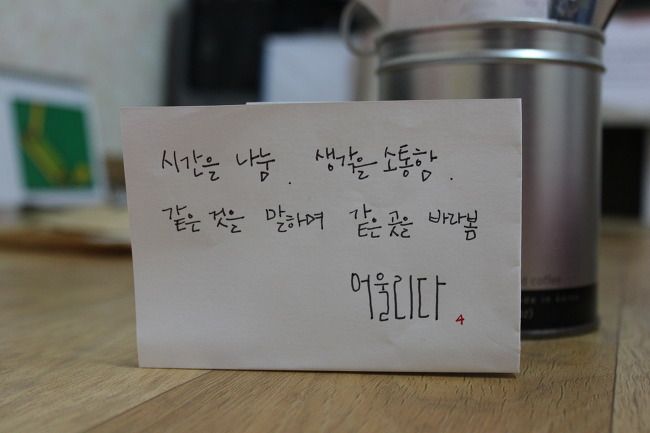 시간을 나눔. 생각을 소통함.
같은 것을 말하며 같은 곳을 바라봄
어울리다 4
coffee